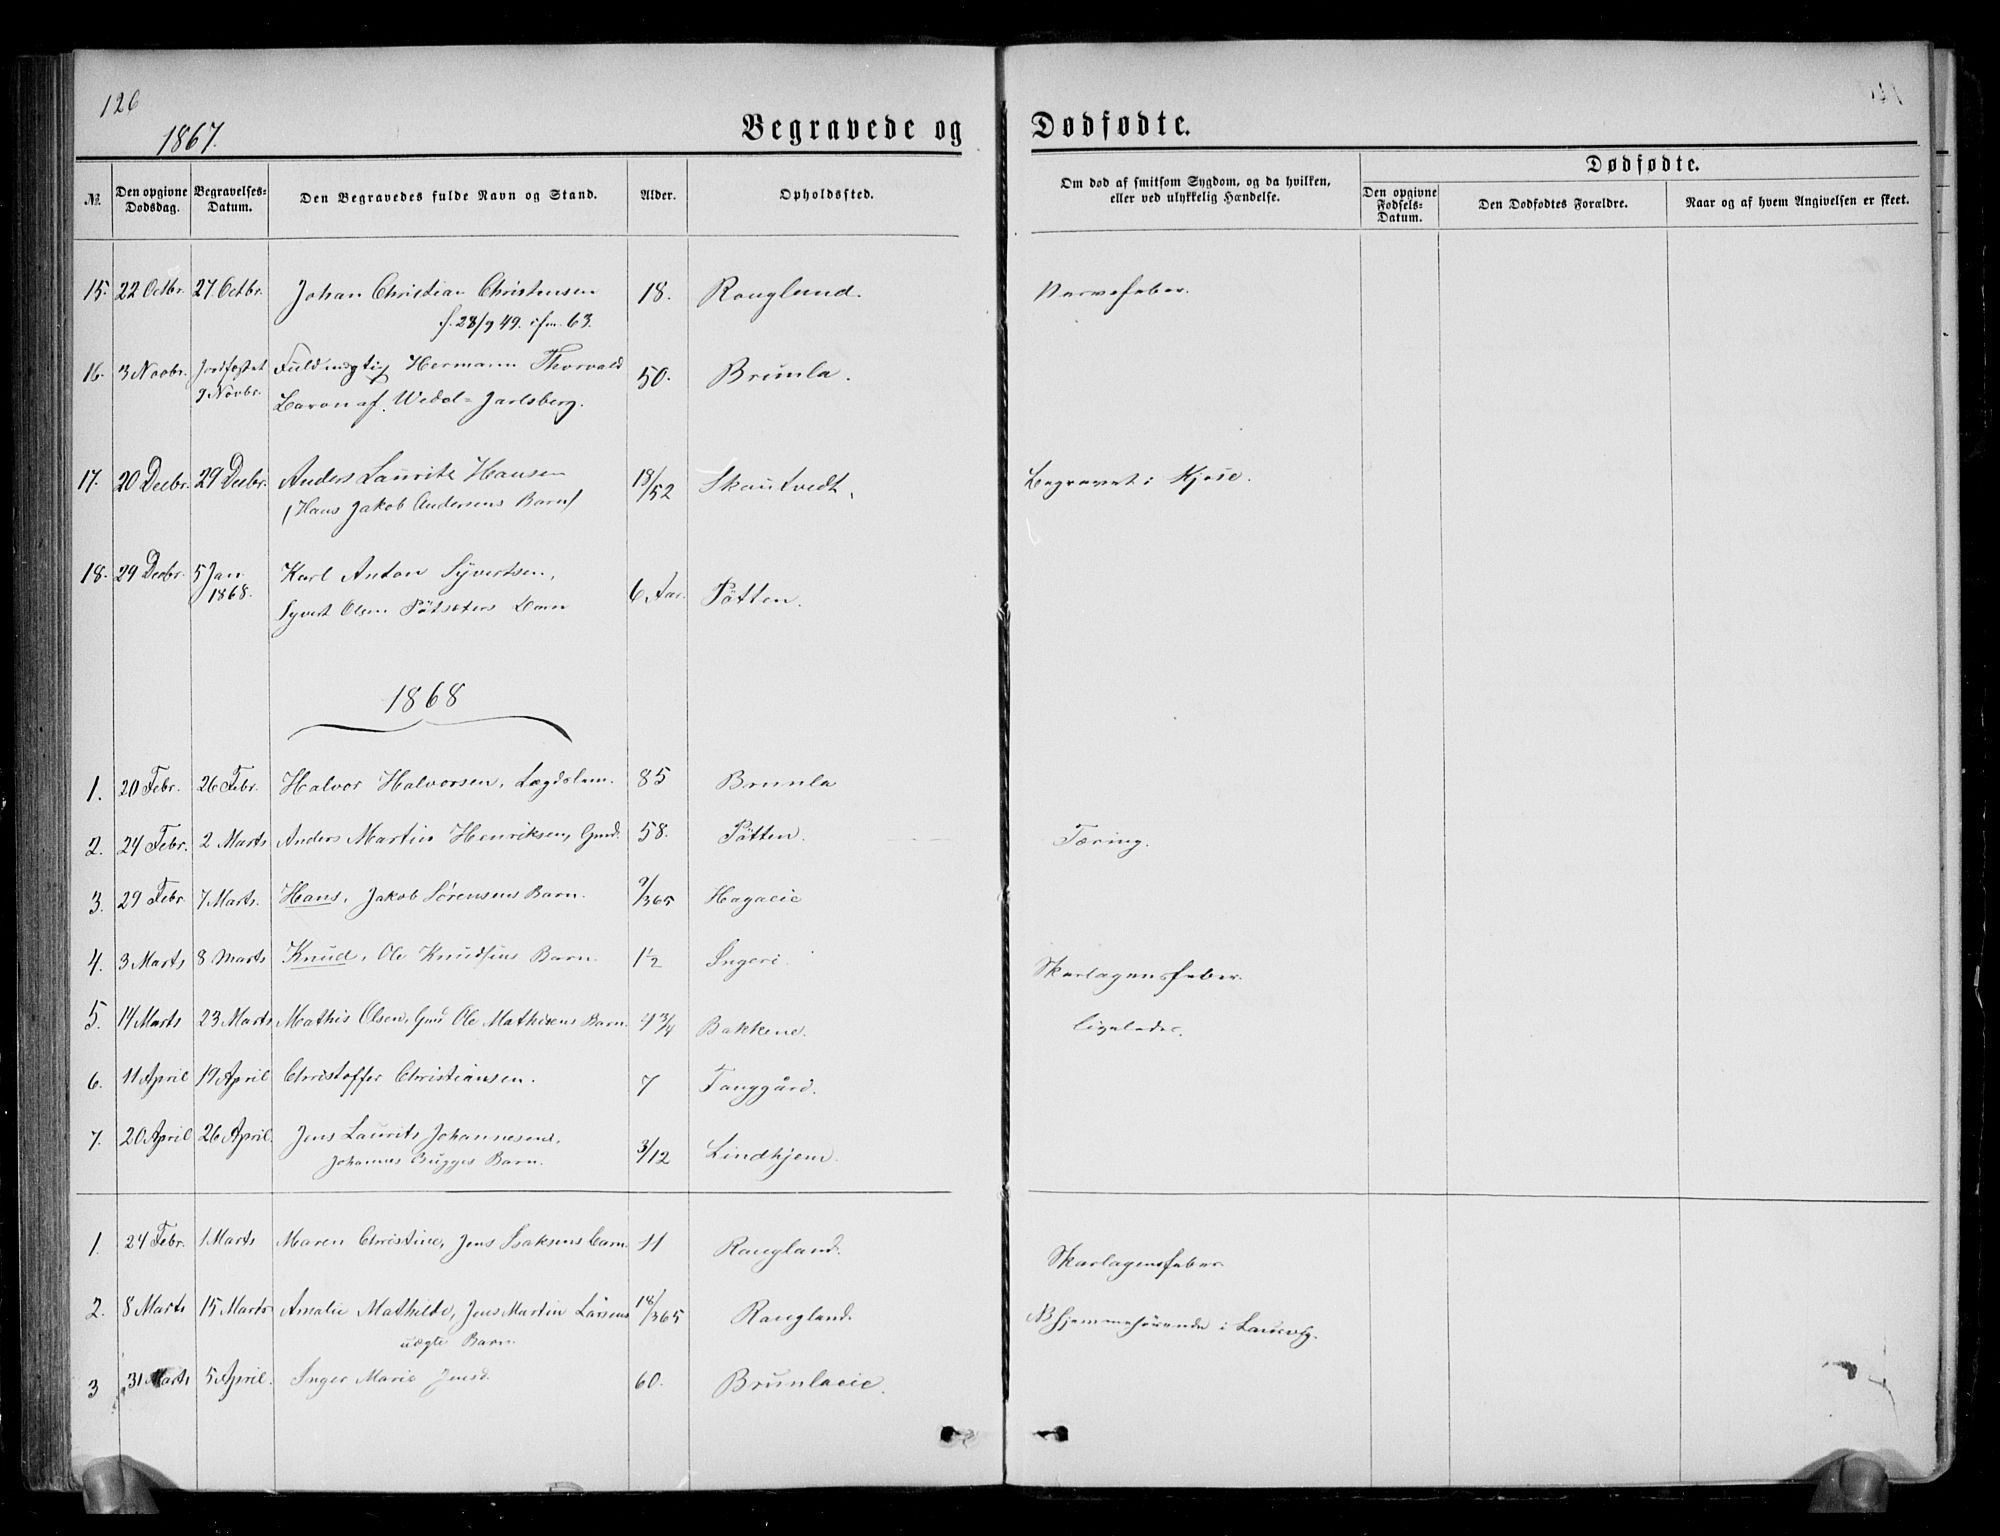 126
1867.
Begravede og Dødfødte.
No. Den opgivne Dødsdag. Begravelses-Datum. Den Begravedes fulde Navn og Stand. Alder. Opholdssted. Om død af smitsom Sygdom, og da hvilken, eller ved ulykkelig Hændelse. Dødfødte. Den opgivne Fødsels-Datum. Den Dødfødtes Forældre. Naar og af hvem Angivelsen er skeet.
15. 22 Octbr. 27 Octbr. Johan Christian Christensen 18. Rougland. Nervefeber.
f. 28/9 49. 63.
16. 3 Novbr. Jordfæstet Fuldmægtig Hermann Thorvald 50. Brunla.
9 Novbr. Baron af Wedel-Jarlsberg.
17. 20 Decbr. 29 Decbr. Anders Lauritz Hansen 18/52 Skoutvedt. Begravet i Kjose.
(Hans Jakob Andersens Barn)
18. 29 Decbr. 5 Jan 1868. Karl Anton Syvertsen, 6 Aar. Pøtten.
Syvert Olsen Barn
1868
1. 20 Febr. 26 Febr. Halvor Halvorsen, Lægdslem. 85 Brunla
2. 24 Febr. 2 Marts Anders Martin Henriksen, Gmd. 58. Pøtten. Tæring.
3. 29 Febr. 7 Marts. Hans, Jakob Sørensens Barn. 9/365 Hagaeie
4. 3 Marts 8 Marts Knud, Ole Knudsens Barn. 1½ Ingeri Skarlagensfeber.
5. 14 Marts 23 Marts Mathis Olsen, Gmd Ole Mathisens Barn. 4¾ Bakkene. ligeledes.
6. 11 April 19 April Christoffer Christiansen. 7 Fauggård.
7. 20 April 26 April. Jens Laurits Johannesens, 3/12 Lindhjem.
Johannes Bugges Barn.
1. 24 Febr. 1 Marts Maren Christine, Jens Isaksens Barn. 11 Rougland. Skarlagensfeber
2. 8 Marts 15 Marts Amalie Mathilde, Jens Martin Larsens 18/365 Rougland. NB hjemmehørende i Laurvig.
uægte Barn.
3 31 Marts 5 April. Inger Marie Jensd. 60. Brunlaeie.